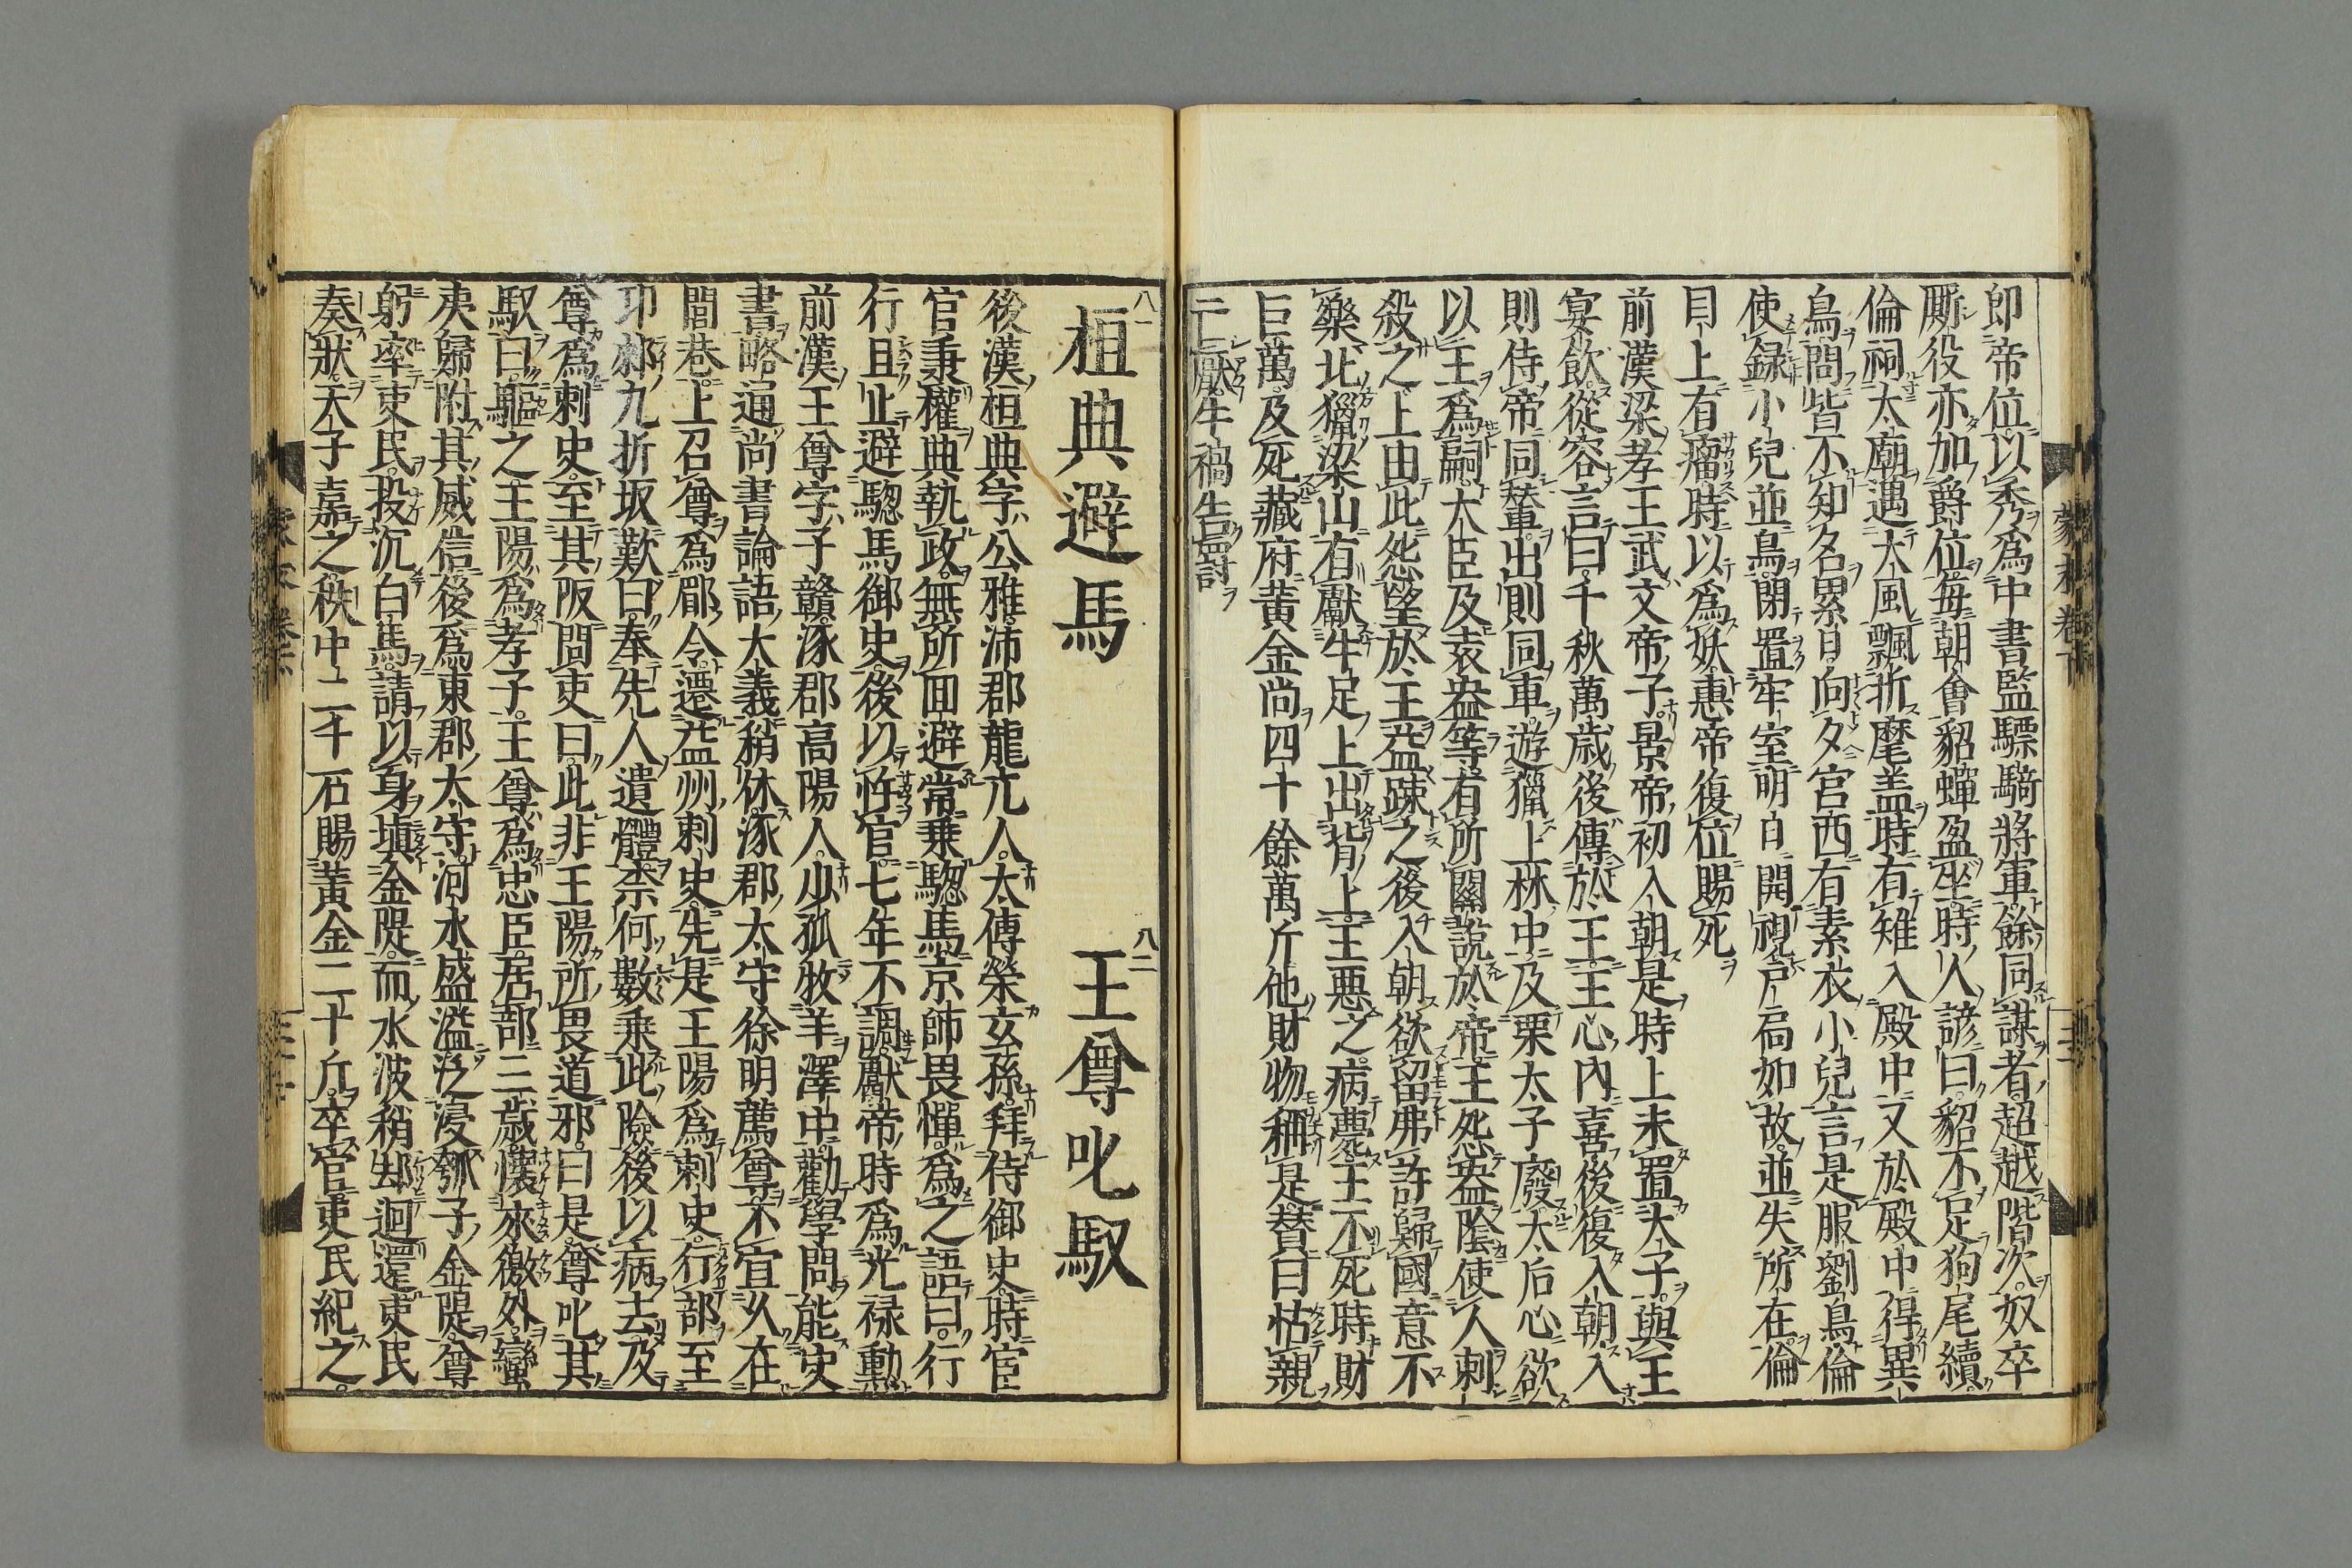 即帝位以秀爲中書監驃騎將軍餘同謀者超越階次奴卒
厮役亦加爵位每朝會貂蟬盈坐時人諺曰貂不足狗尾續
倫祠太廟遇大風飄折麾盖時有雉入殿中又於殿中得異
鳥問皆不知名累日向夕宮西有素衣小兒言是服劉鳥倫
使録小兒並鳥閉置牢室明日開視戸扃如故並失所在倫
目上有瘤時以爲妖惠帝復位賜死
前漢梁孝王武文帝子景帝初入朝是時上未置太子與王
宴飲從容言曰千秋萬歳後傳於王王心內喜後復入朝入
則侍帝同輦出則同車遊獵上林中及栗太子廢太后心欲
以王爲嗣大臣及袁盎等有所關説於帝王怨盎陰使人刺
殺之上由此怨望於王益疎之後入朝欲留弗許歸國意不
樂北獵梁山有獻牛足上出背上王悪之病薨王不死時財
巨萬及死藏府黄金尚四十餘萬斤他財物稱是賛曰怙親
亡厭牛禍告罰
蒙求卷下
八一 桓典避馬 八二 王尊叱馭
後漢桓典字公雅沛郡龍亢人太傅榮玄孫拜侍御史時宦
官秉權典執政無所回避常乗驄馬京師畏憚爲之語曰行
行且止避驄馬御史後以忤官七年不調獻帝時爲光禄勳
前漢王尊字子贛涿郡高陽人少孤牧羊澤中勸學問能史
書略通尚書論語大義稍休涿郡太守徐明薦尊不宜久在
閭巷上召尊爲郿令遷益州刺史先是王陽爲刺史行部至
卭郲九折坂歎曰奉先人遺體柰何數乗此險後以病去及
尊爲刺史至其阪問吏曰此非王陽所畏道邪曰是尊叱其
馭曰驅之王陽爲孝子王尊爲忠臣居部三歳懷來徼外蠻
夷歸附其威信後爲東郡太守河水盛溢泛浸瓠子金隄尊
躬率吏民投沉白馬請以身塡金隄而水波稍却迴還吏民
奏狀天子嘉之秩中二千石賜黄金二十斤卒官吏民紀之